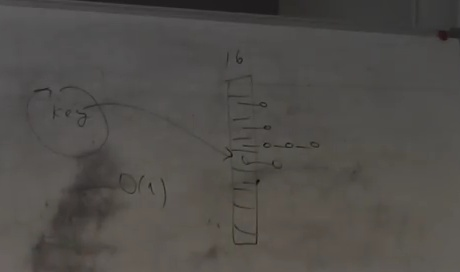 16
key
O(1)